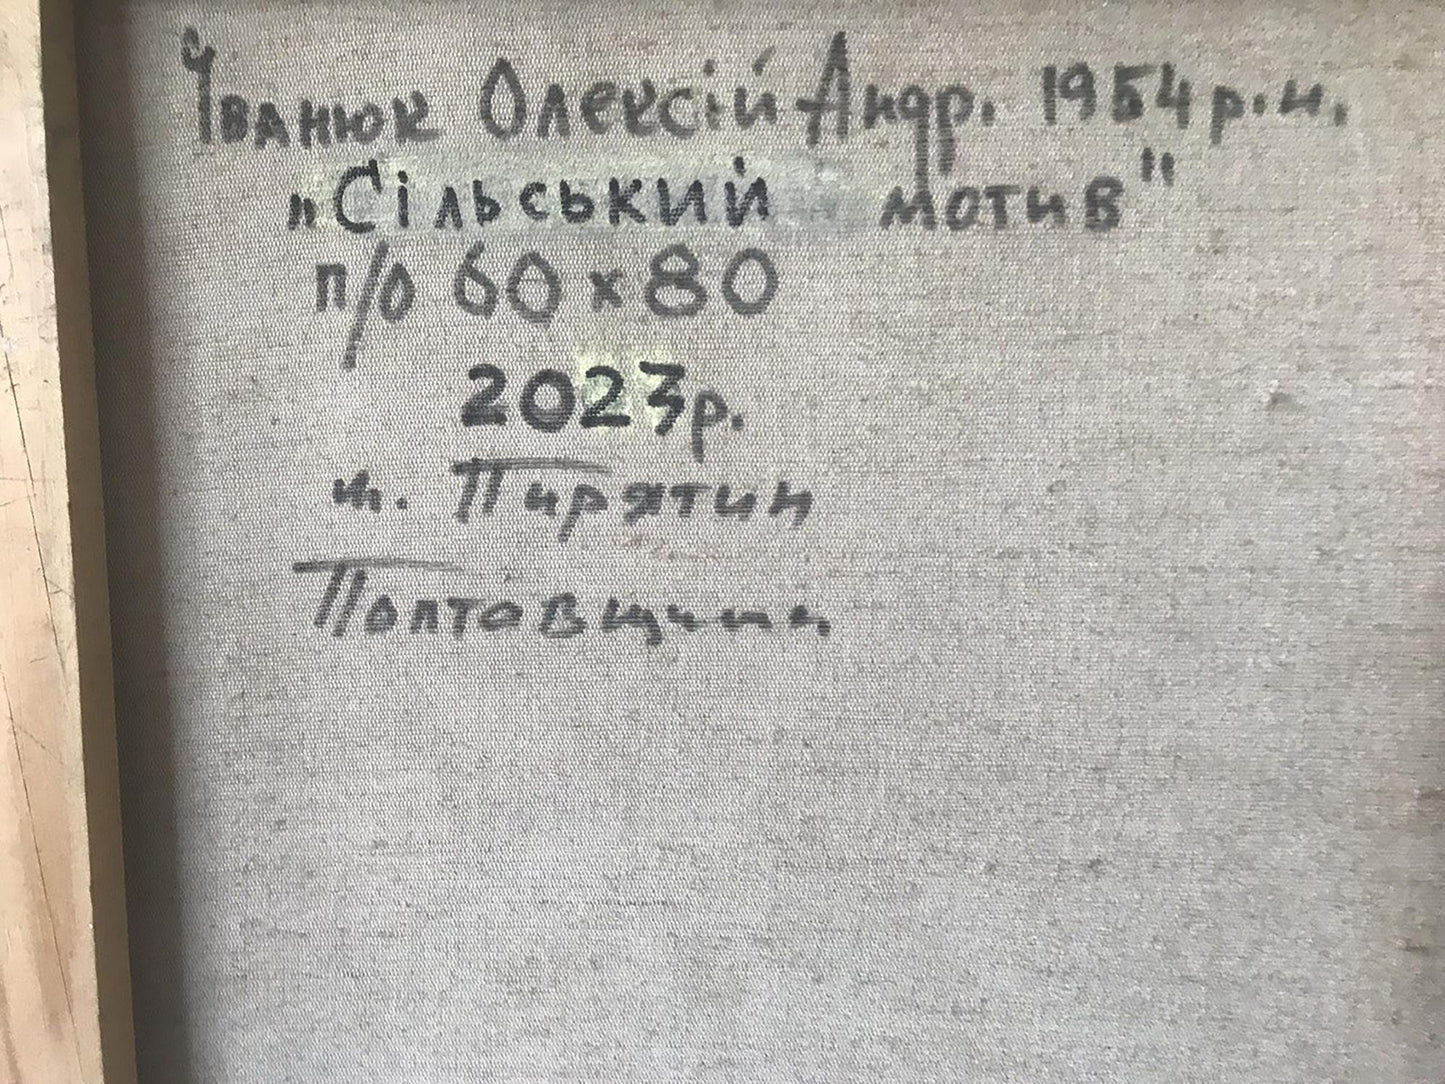 Іванюк Олексій Андр. 1954 р.н.
"Сільський мотив"
п/о 60х80
2023р.
м. Пирятин
Полтовщина